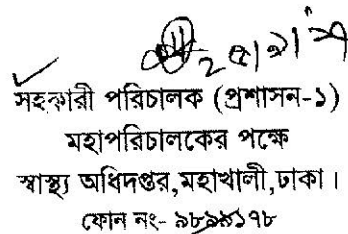 সহকারী পরিচালক (প্রশাসন-১)
মহাপরিচালকের পক্ষে
স্বাস্থ্য অধিদপ্তর,মহাখালী,ঢাকা।
ফোন নং- ৯৮৯৯১৭৮